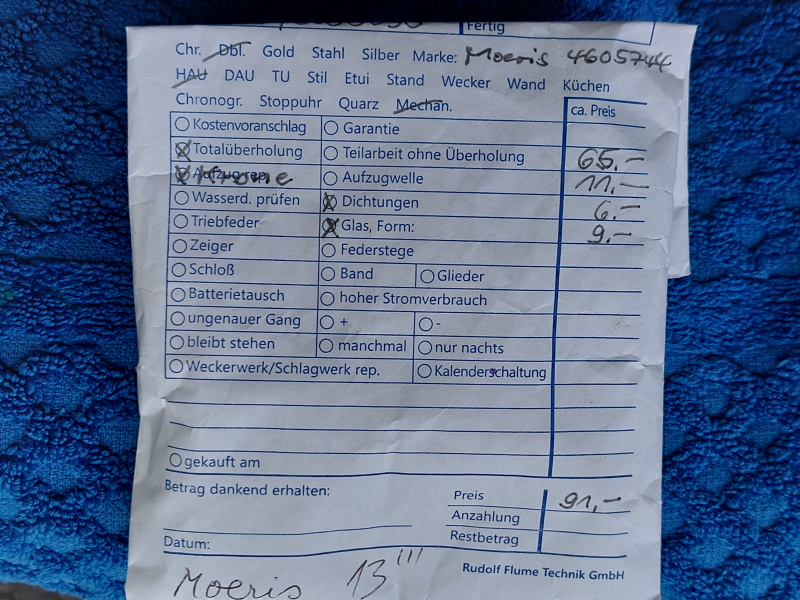 Fertig
Chr. Dbl. Gold Stahl Silber Marke: Moeris 4605744
HAU DAU TU Stil Etui Stand Wecker Wand Küchen
Chronogr. Stoppuhr Quarz Mechan. ca. Preis
Kostenvoranschlag Garantie
Totalüberholung Teilarbeit ohne Überholung 65,-
Aufzug rep. Krone Aufzugwelle 11,-
Wasserd. prüfen Dichtungen 6,-
Triebfeder Glas, Form: 9,-
Zeiger Federstege
Schloß Band Glieder
Batterietausch hoher Stromverbrauch
ungenauer Gang + -
bleibt stehen manchmal nur nachts
Weckerwerk/Schlagwerk rep. Kalenderschaltung
gekauft am
Betrag dankend erhalten: Preis 91,-
Anzahlung
Restbetrag
Datum:
Rudolf Flume Technik GmbH
Moeris 13'''